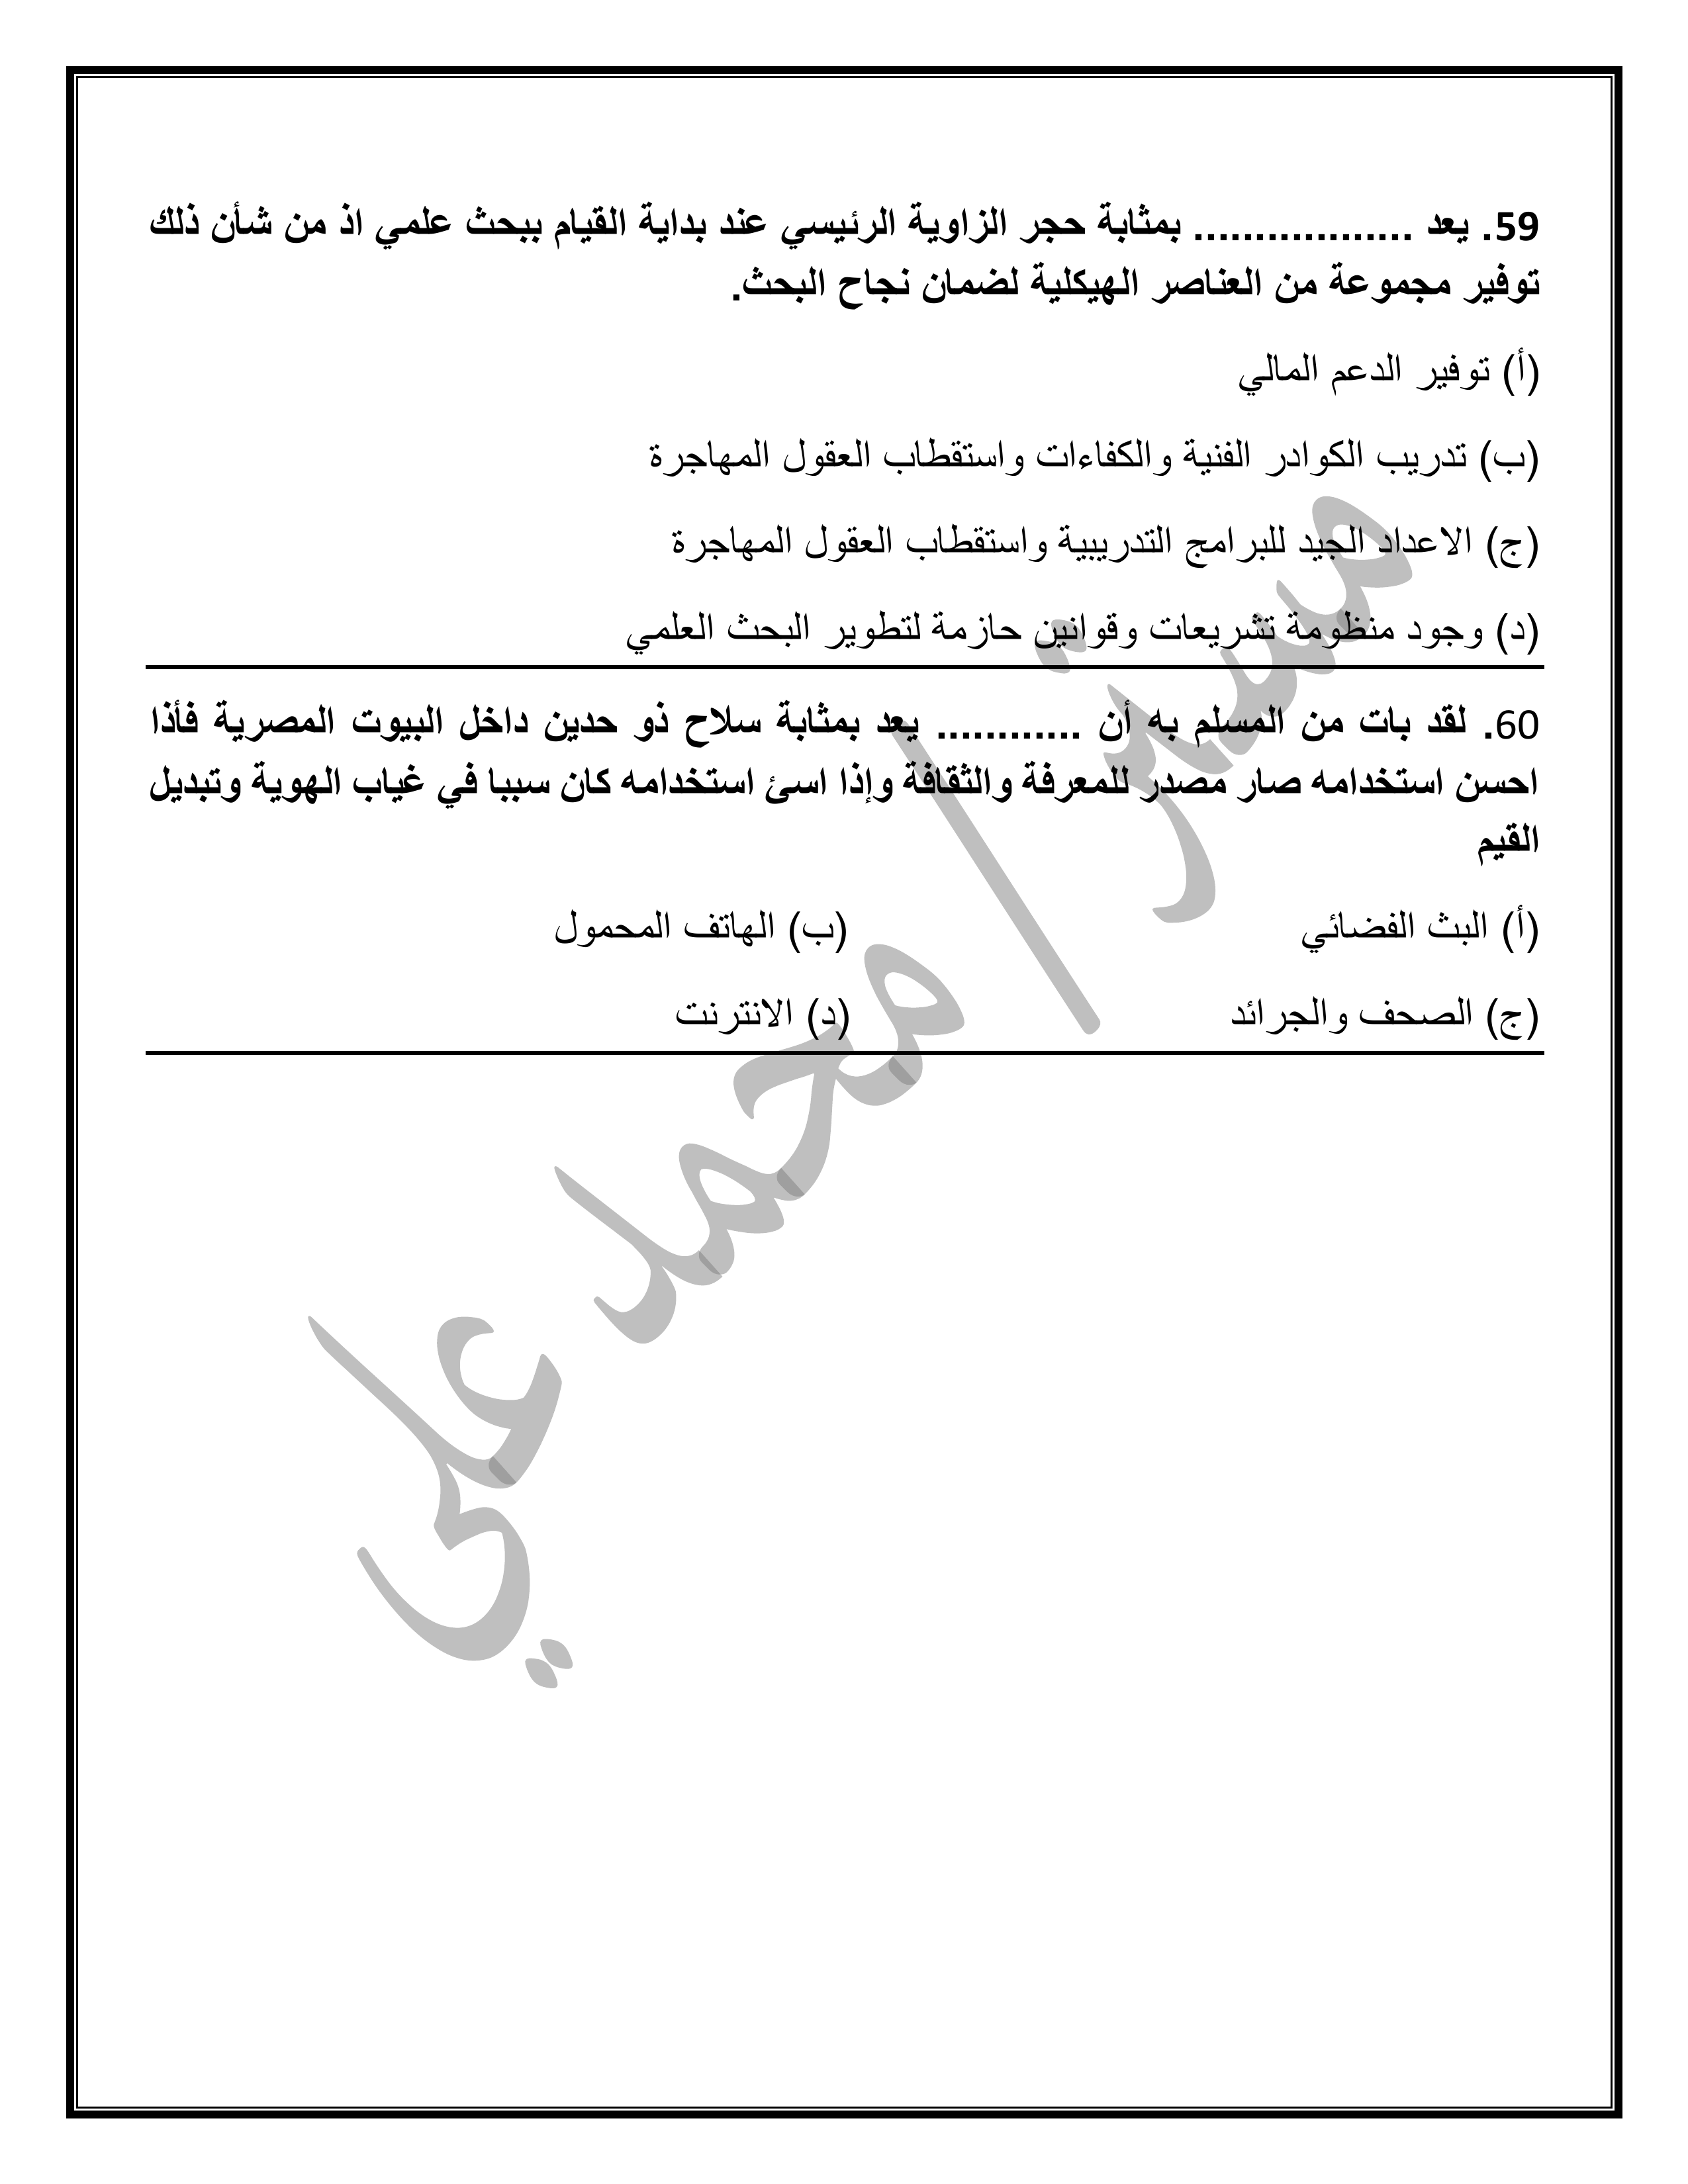 59. يعد .................. بمثابة حجر الزاوية الرئيسي عند بداية القيام ببحث علمي اذ من شأن ذلك
توفير مجموعة من العناصر الهيكلية لضمان نجاح البحث.
(أ) توفير الدعم المالي
(ب) تدريب الكوادر الفنية والكفاءات واستقطاب العقول المهاجرة
(ج) الاعداد الجيد للبرامج التدريبية واستقطاب العقول المهاجرة
(د) وجود منظومة تشريعات وقوانين حازمة لتطوير البحث العلمي
60. لقد بات من المسلم به أن ............ يعد بمثابة سلاح ذو حدين داخل البيوت المصرية فأذا
احسن استخدامه صار مصدر للمعرفة والثقافة وإذا اسئ استخدامه كان سببا في غياب الهوية وتبديل
القيم
(أ) البث الفضائي (ب) الهاتف المحمول
(ج) الصحف والجرائد (د) الانترنت
مستر / محمد علي